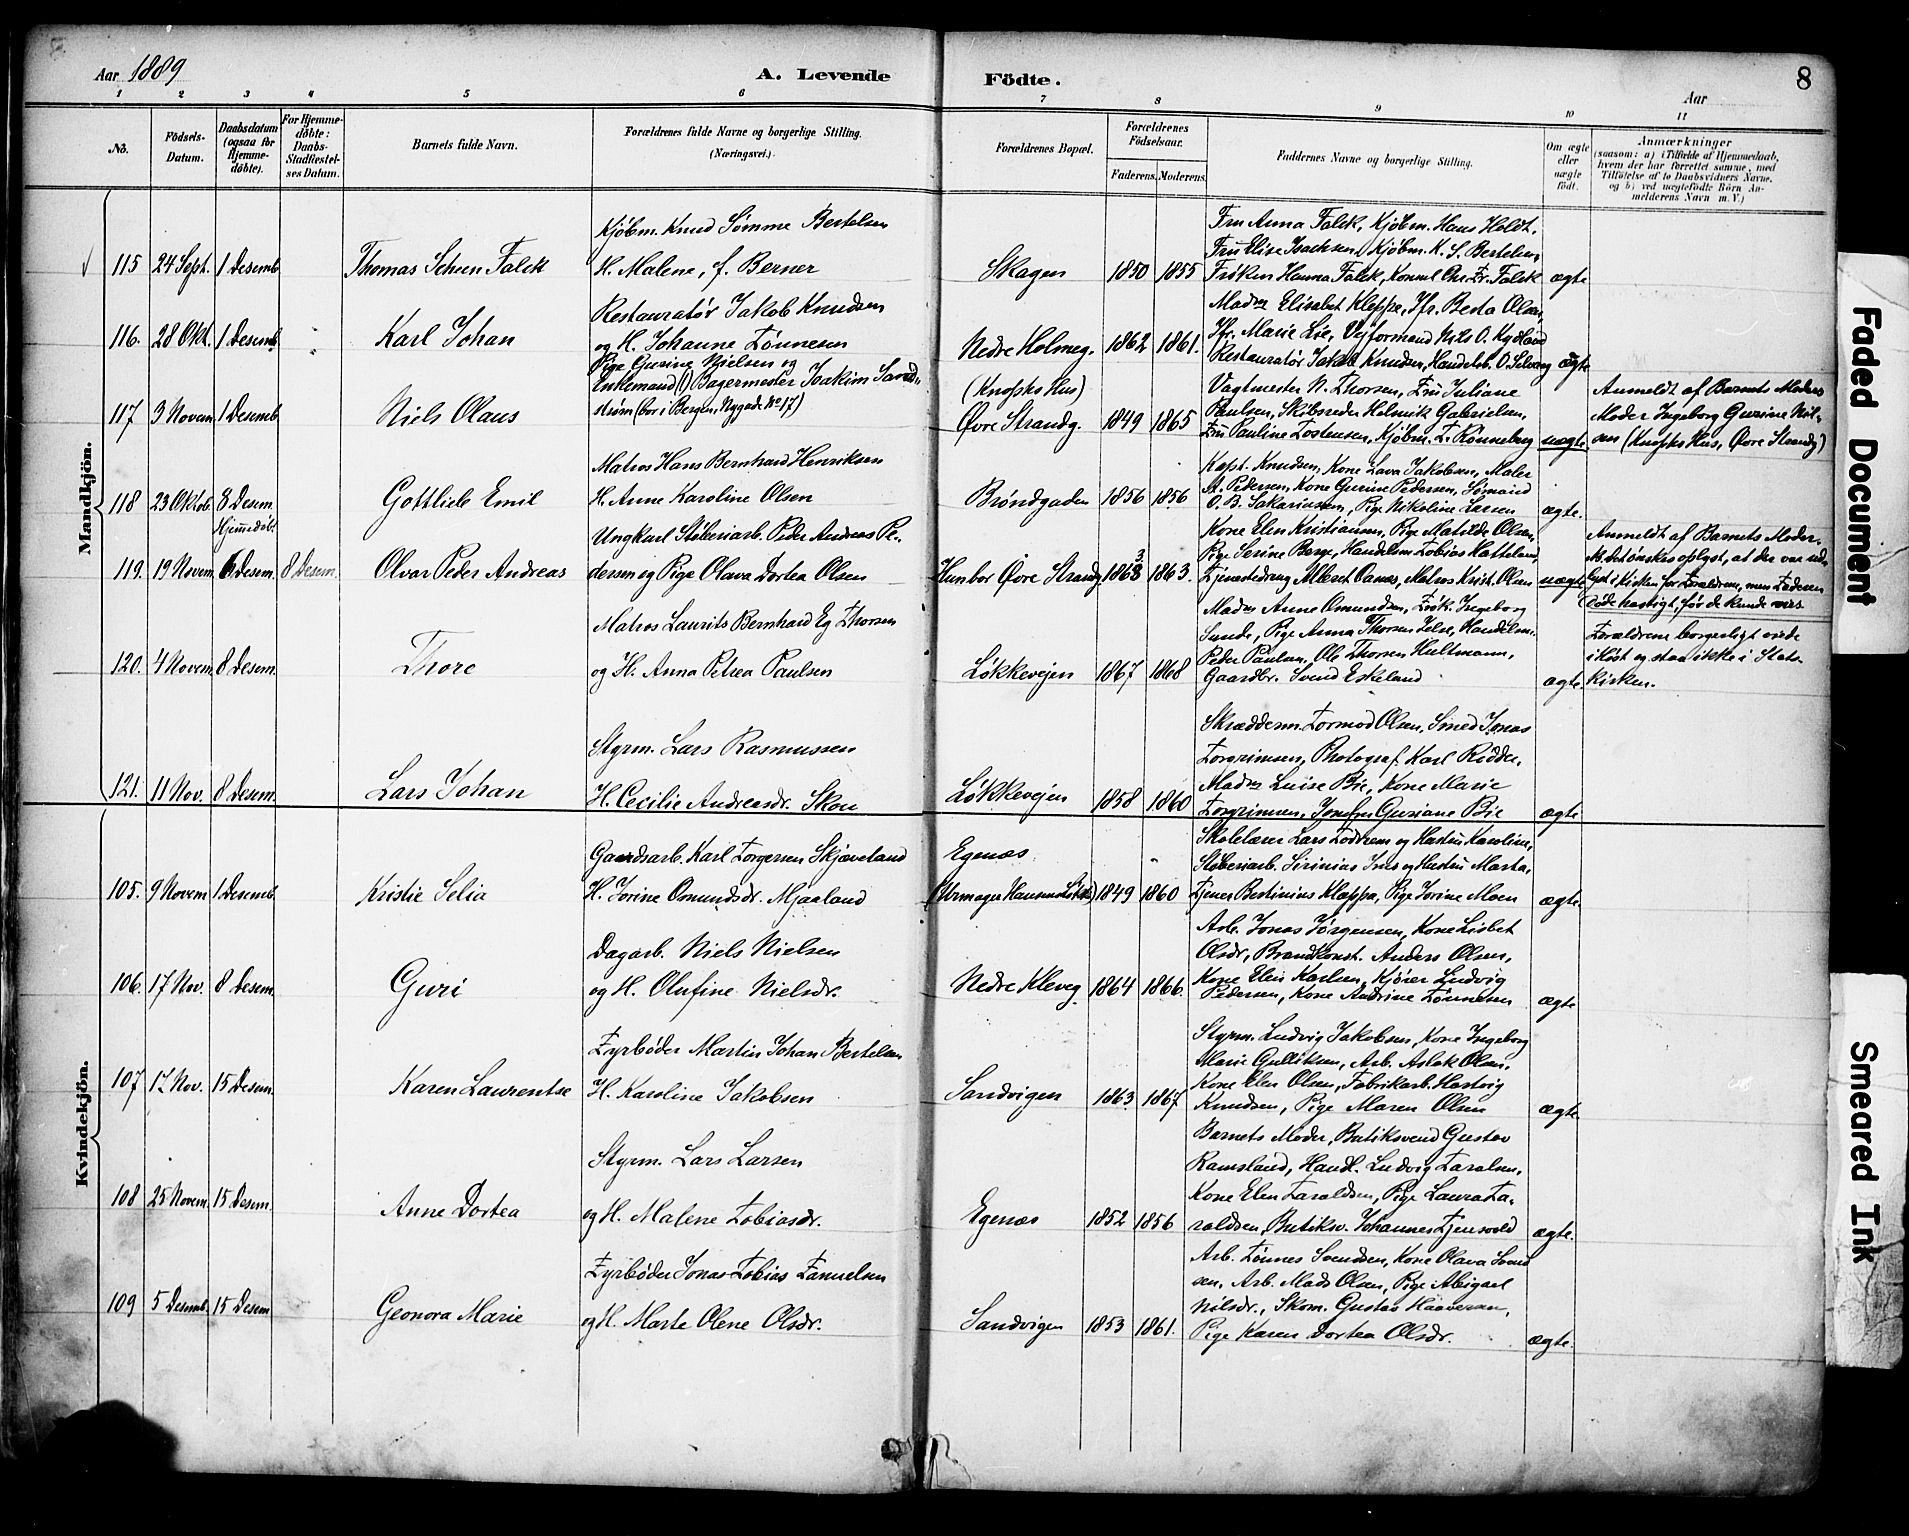 Aar 1889
A. Levende
Födte.
Aar
8
1 2 3 4 5 6 7 8 9 10 11
No.
Födsels-Datum.
Daabsdatum (ogsaa for Hjemme-döbte).
For Hjemme-döbte: Daabs-Stadfæstel-ses Datum.
Barnets fulde Navn.
Forældrenes fulde Navne og borgerlige Stilling.
(Næringsvei.)
Forældrenes Bopæl.
Forældrenes Födselsaar.
Faderens. Moderens.
Faddernes Navne og borgerlige Stilling.
Om ægte eller uægte födt.
Anmærkninger
(saasom: a) i Tilfælde af Hjemmedaab,
hvem der har forrettet samme, med
Tilföielse af to Daabsvidners Navne.
og b) ved uægtefödte Börn An-
melderens Navn m. V.)
Mandkjön.
115 24 Sept. 1 Desemb Thomas Scheen Falck
Kjøbm. Knud Sømme Bertelsen
H. Malene, f. Berner
Skagen 1850 1855
Fru Anna Falck, Kjøbm. Hans Holdt,
Fru Elise Isachsen, Kjøbm. K. S. Bertelsen,
Frøken Hanna Falck, Konsul Chr. Fr. Falck
ægte
116. 28 Okt. 1 Desemb " Karl Johan
Restauratør Jakob Knudsen
og H. Johanne Tønnesen
Nedre Holmeg. 1862 1861.
Madm Elisabet Kleppe, Jfr. Berta Olsen,
Jfr. Marie Lie, Vejformand Nils O. Nylland
Restauratør Jakob Knudsen, Handelsb. O. Selvaag
ægte
117 3 Novem 1 Desemb Niels Olaus
Pige Gurine Nielsen og
Enkemand () Bagermester Joakim Sand-
strøm (bor i Bergen, Nygade No 17)
(Knophs Hus)
Øvre Strandg. 1849 1865
Vagtmester N. Thorsen, Fru Juliane
Paulsen, Skibsreder Helmik Gabrielsen,
Fru Pauline Tostensen, Kjøbm. T. Rønneberg
uægte
Anmeldt af Barnets Moders
Moder Ingeborg Gurine Niel-
sen (Knophs Hus, Øvre Strandg)
118 23 Oktob 8 Desem. Gottlieb Emil
Matros Hans Bernhard Henriksen
H. Anne Karoline Olsen
Brøndgaden 1856 1856
Kapt. Knudsen, Kone Lava Jakobsen, Maler
A. Pedersen, Kone Gurine Pedersen, Sømand
O. B. Sakariassen, Pige Nikoline Larsen
ægte.
Hjemmedøb.
119. 19 Novem 6 Desem. 8 Desem. Olvar Peder Andreas
Ungkarl Støberiarb. Peder Andreas Pe-
dersen og Pige Olava Dortea Olsen
Hunbor Øvre Strandg 1863 1863.
Kone Elen Kristiansen, Pige Matilde Olsen,
Pige Serine Berge, Handelsm Tobias Hatteland,
Tjenestedreng Albret Oanes, Matros Krist. Olsen
uægte
Anmeldt af Barnets Moder.
At. det ønskes oplyst, at der var ud-
lyst i Kirken for Forældrene, men Faderen
døde hastigt, før de kunde vies
120. 4 Novem 8 Desem. Thore
Matros Laurits Bernhard Eg Thorsen
og H. Anna Petrea Paulsen
Løkkevejen 1867 1868
Madm Anne Omundsen, Frøk. Ingeborg
Sunde, Pige Anna Thorsen Jelse, Handelsm.
Peder Paulsen, Ole Thorsen Hultmann,
Gaardbr. Svend Eskeland
ægte.
Forældrene borgerligt viede
i Høst og staa ikke i Stats-
Kirken.
121. 11 Nov. 8 Desem. Lars Johan
Styrm. Lars Rasmussen
H. Cecilie Andreasdr. Skou
Løkkevejen 1858 1860
Skrædderm. Tormod Olsen, Smed Jonas
Torgrimsen, Photograf Karl Ridder,
Madm Luise Bie, Kone Marie
Torgrimsen, Jomfru Gusiane Bie
ægte
Kvindekjön.
105. 9 Novem 1 Desemb. Kristie Selia
Gaardsarb. Karl Torgersen Skjæveland
H. Jorine Osmundsdr. Mjaaland
Egenæs
(Urmager Hansens Løkke) 1849 1860
Skolelærer Lars Todnem og Hustru Karoline,
Støberiarb. Sirinius Ims og Hustru Marta,
Tjener Bertinius Kleppa, Pige Jorine Moen
ægte.
106. 17 Nov. 8 Desem. Guri
Dagarb. Niels Nielsen
og H. Olufine Nielsdr.
Nedre Kleveg. 1864 1866.
Arb. Jonas Jørgensen, Kone Lisbet
Olsdr, Brandkonst. Anders Olsen,
Kone Elen Karlsen, Kjører Ludvig
Pedersen, Kone Andrine Tønnesen
ægte
107 17 Nov. 15 Desem. Karen Laurentse
Fyrbøder Martin Johan Bertelsen
H. Karoline Jakobsen
Sandvigen 1863 1867
Styrm. Ludvig Jakobsen, Kone Ingeborg
Marie Gulliksen, Arb. Aslak Olsen,
Kone Elen Olsen, Fabrikarb. Hartvig
Knudsen, Pige Maren Olsen
ægte.
108 25 Novem. 15 Desem. Anne Dortea
Styrm. Lars Larsen
og H. Malene Tobiasdr.
Egenæs 1852 1856
Barnets Moder, Butiksvend Gustav
Ramsland, Handl. Ludvig Taralsen,
Kone Elen Taraldsen, Pige Laura Ta-
raldsen, Butiksv. Johannes Tjensvold
ægte.
109 5 Desemb. 15 Desem Geonora Marie
Fyrbøder Jonas Tobias Samuelsen
og H. Marte Olene Olsdr.
Sandvigen 1853 1861.
Arb. Tønnes Svendsen, Kone Olava Svend
sen, Arb. Mads Olsen, Pige Abigael
Nilsdr., Skom. Gustav Haaversen,
Pige Karen Dortea Olsdr.
ægte.
Faded Document
Smeared Ink